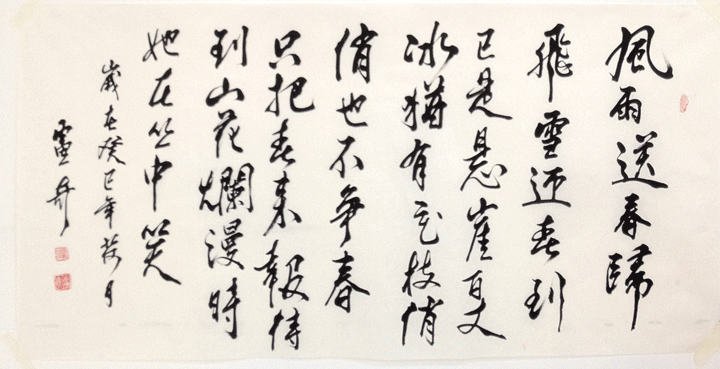 風雨送春歸
飛雪迎春到
已是悬崖百丈
冰猶有花枝俏
俏也不争春
只把春来報待
到山花爛漫時
她在丛中笑
歲在癸巳年荷月